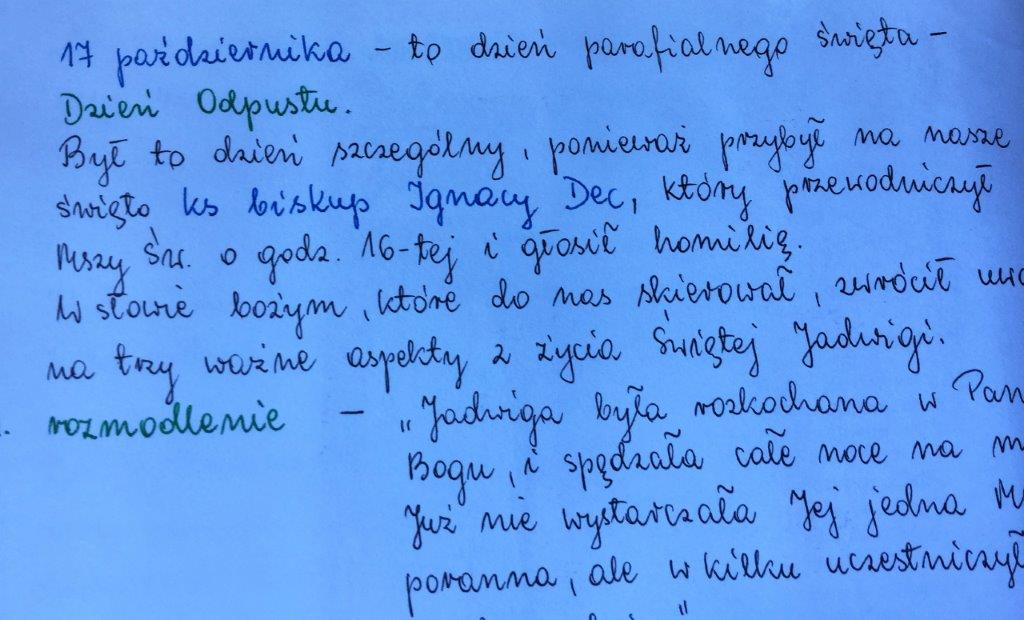 17 października - to dzień parafialnego święta -
Dzień Odpustu.
Był to dzień szczególny, ponieważ przybył na nasze
święto ks biskup Ignacy Dec, który przewodniczył
Mszy Św. o godz. 16-tej i głosił homilię.
W słowie bożym, które do nas skierował, zwrócił
na trzy ważne aspekty z życia Świętej Jadwigi.
rozmodlenie - „Jadwiga była rozkochana w Pan
Bogu, i spędzała całe noce na
Już nie wystarczała Jej jedna
poranna, ale w kilku uczestniczył